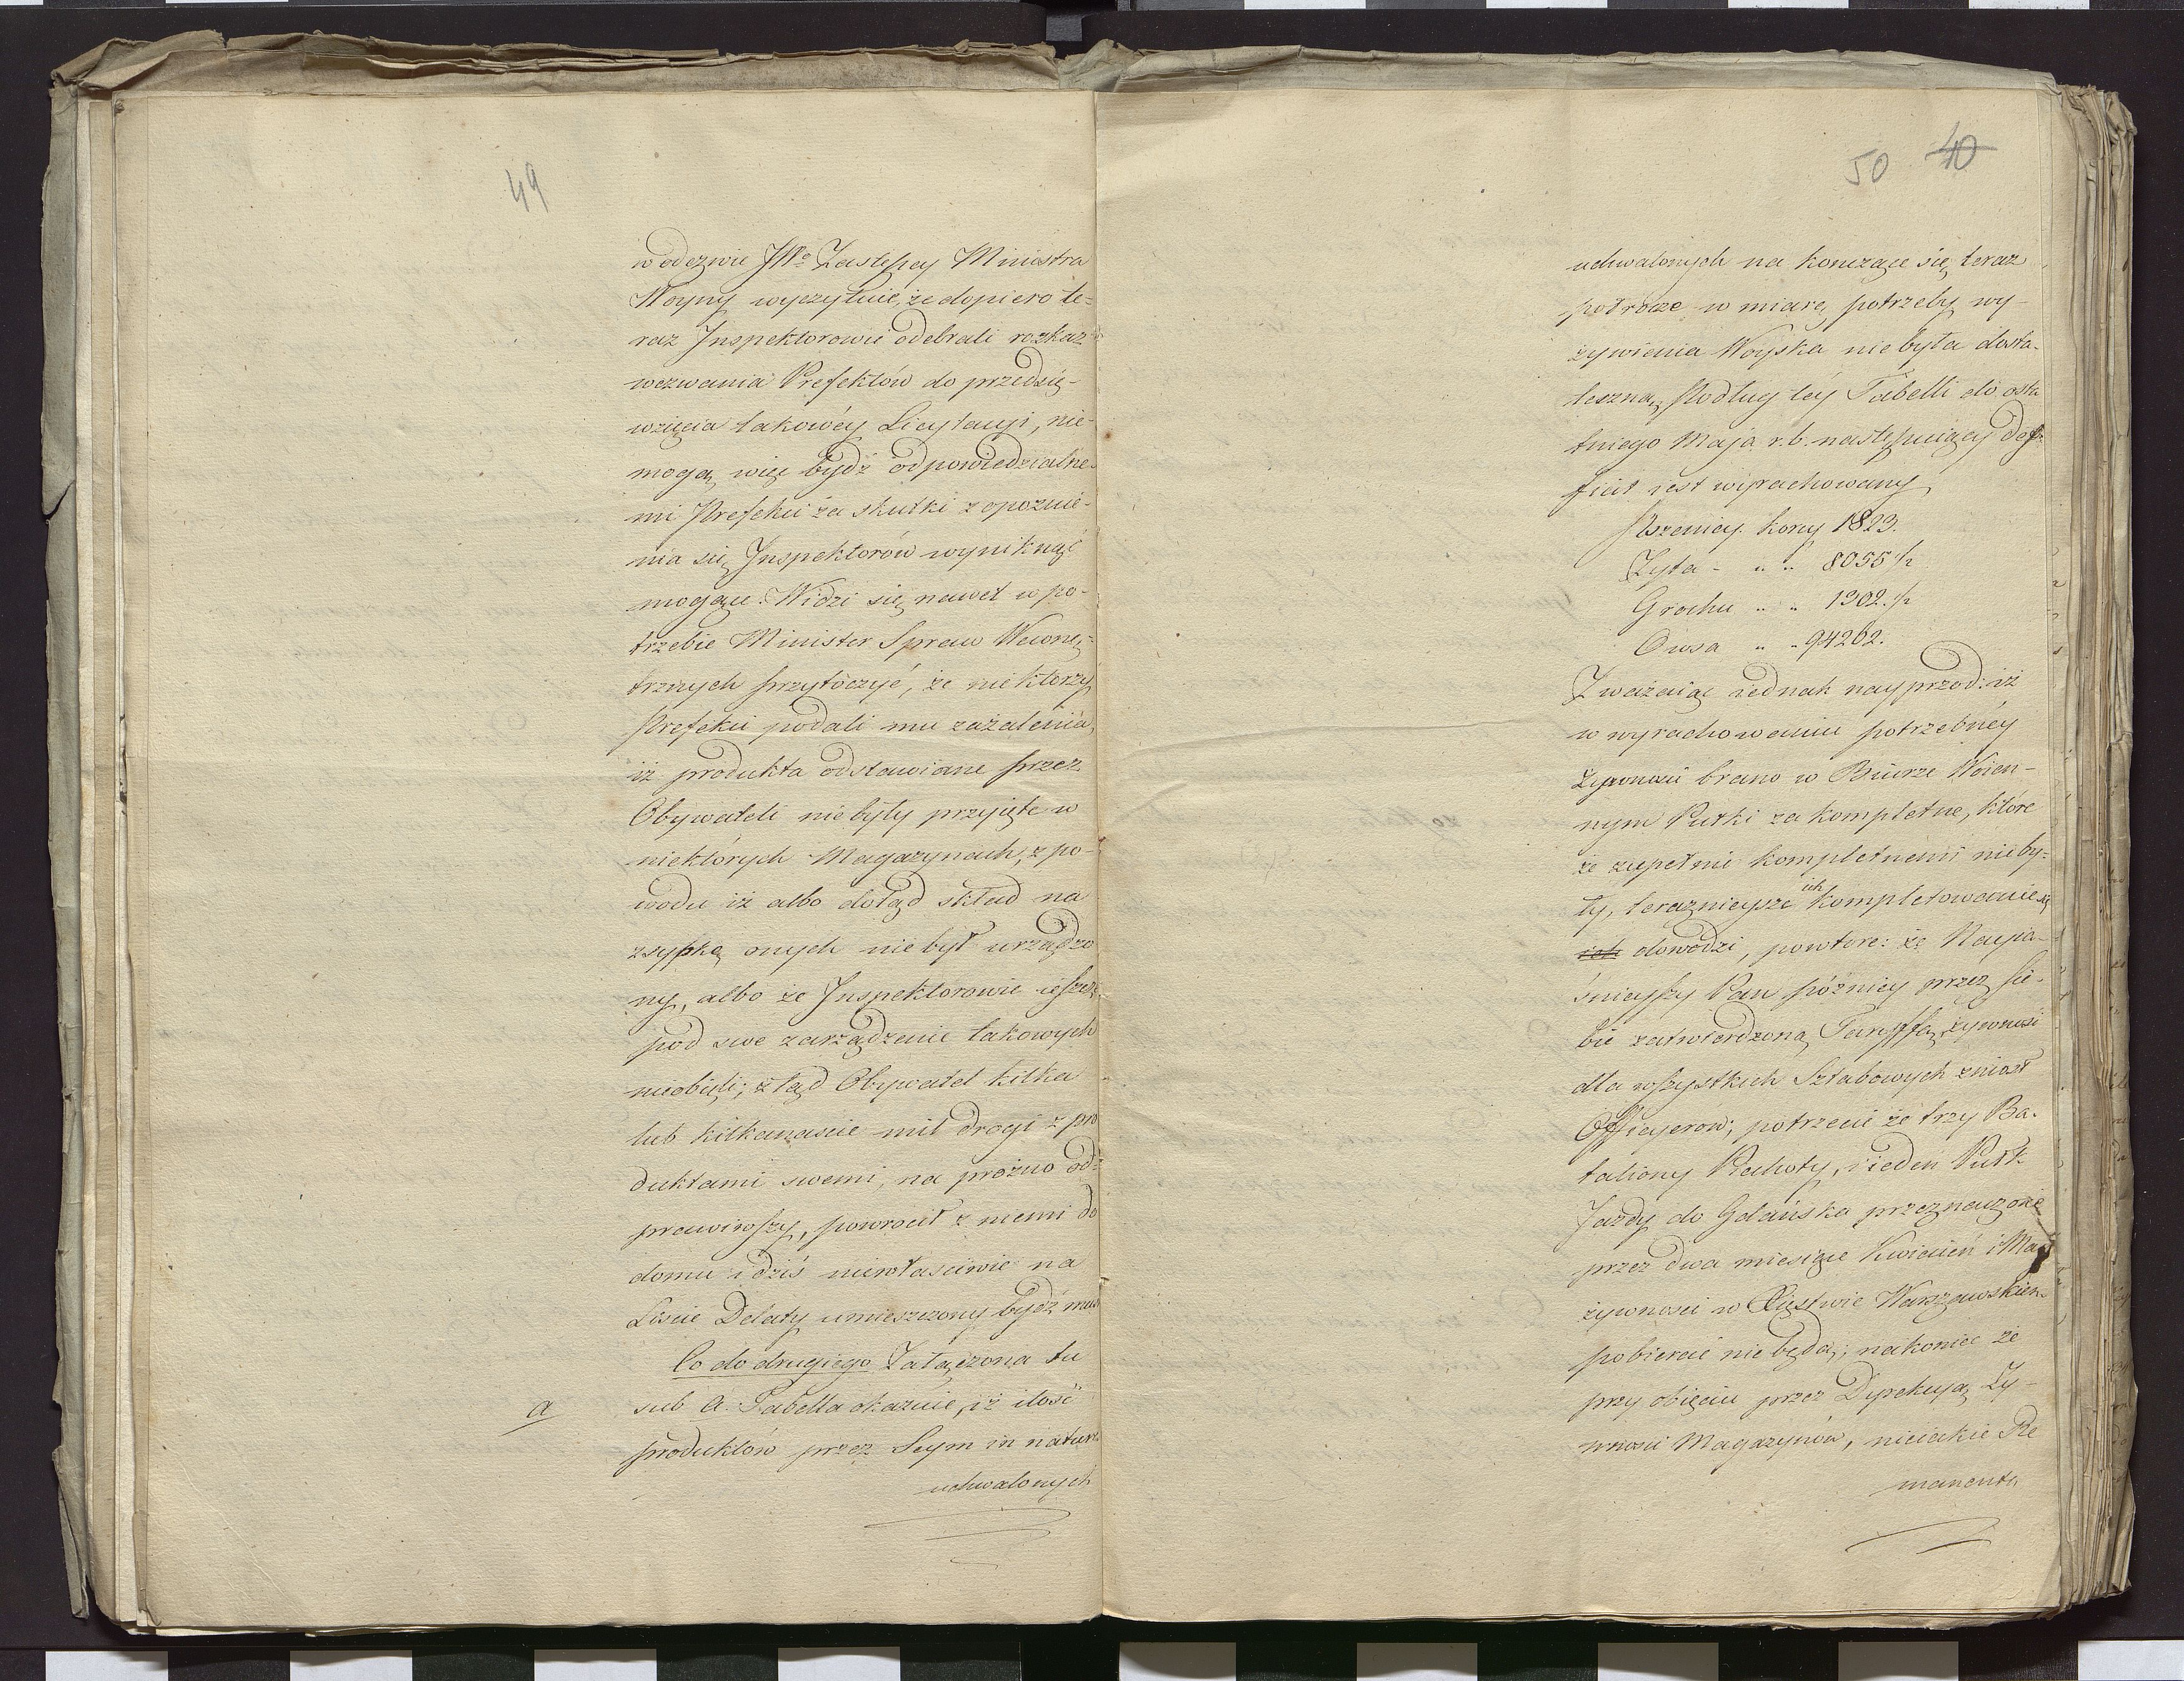 49
w odezwie JWo Zastępcy Ministra
Woyny wyczytuie, że dopiero te=
raz Inspektorowie odebrali rozkaz
wezwania Prefektów do przedsię-
wzięcia takowéy Licytacyi, nie-
mogą więc bydź odpowiedzialne-
mi Prefekci za skutki z opoznie-
nia się Inspektorów wyniknąć
mogące. Widzi się nawet w po-
trzebie Minister Spraw Wewnę=
trznych przytoczyć, że niektorzy
Prefekci podali mu zażalenia,
iż produkta odstawiane przez
Obywateli nie były przyięte w
niektórych Magazynach, z po-
wodu iż albo dotąd skład na
zsypkę onych nie był urządzo
ny, albo że Inspektorowie ieszcze
pod swe zarządzenie takowych
nieobięli; z tąd Obywatel kilka
lub kilkanascie mil drogi z pro
duktami swemi, na prożno od=
prawiwszy, powrocił z niemi do
domu i dziś niewłasciwie na
Liscie Delaty umieszczony bydź musi
Co do drugiego Załączona tu
a
sub a. Tabella okazuie, iż ilość
produktów przez Seym in natura
uchwalonych
50 40
uchwalonych na konczące się teraz
potrocze w miarę potrzeby wy-
zywienia Woyska nie była dosta-
teczną, Podług téy Tabelli do osta
tniego Maja r.b. następuiący def=
ficit iest wyrachowany
Pszenicy. korcy 1823.
Zyta - " " 8055 1/2
Grochu " " 1302. 1/2
Owsa " " 94262.
Zważaiąc iednak nayprzod: iż
w wyrachowaniu potrzebnéy
Żywnosci brano w Biurze Woien-
nym Pułki za kompletne, które
że zupełnie kompletnemi nie by=
ły, terazniejsze ich kompletowanie się
ich dowodzi, powtore: że Nayia-
śnieyszy Pan późniey przez sie-
bie zatwierdzoną Taryffą żywnosci
dla wszystkich Sztabowych zniosł
Officyerow; potrzecie że trzy Ba-
taliony Piechoty, i ieden Pułk
Jazdy do Gdańska przeznaczone
przez dwa miesiące Kwiecień i May
żywnosci w Xięstwie Warszawskiem
pobierać nie będą; nakoniec że
przy obięciu przez Dyrekcyą Ży-
wnosci Magazynów, nieiakie Re
manenta